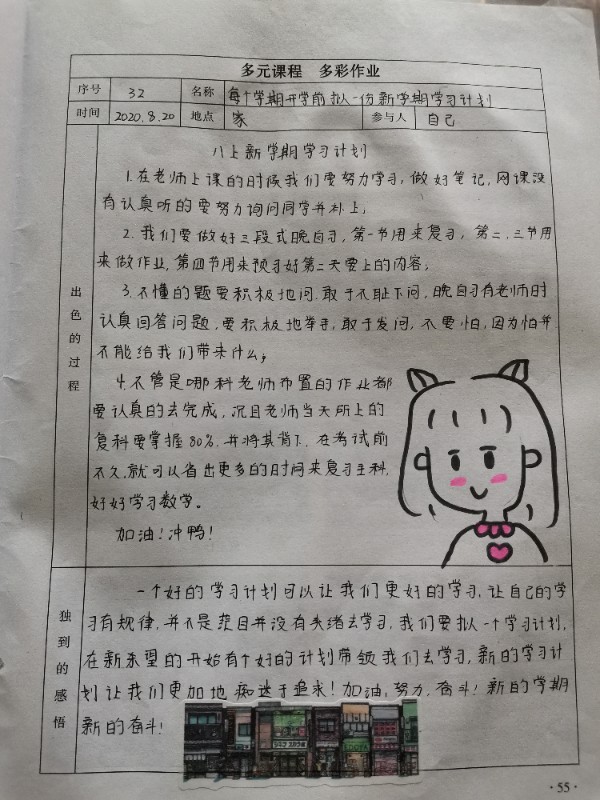 多元课程 多彩作业
序号 32 名称 每个学期开学前拟一份新学期学习计划
时间 2020.8.20 地点 家 参与人 自己
出色的过程
八上新学期学习计划
1.在老师上课的时候我们要努力学习,做好笔记,网课没
有认真听的要努力询问同学并补上;
2.我们要做好三段式晚自习,第一节用来复习,第二、三节用
来做作业,第四节用来预习好第二天要上的内容;
3.不懂的题要积极地问,敢于不耻下问,晚自习有老师时
认真回答问题,要积极地举手,敢于发问,不要怕,因为怕并
不能给我们带来什么;
4.不管是哪科老师布置的作业都
要认真的去完成,况且老师当天所上的
复科要掌握80%,并将其背下,在考试前
不久,就可以省出更多的时间来复习主科,
好好学习数学。
加油!冲鸭!
独到的感悟
一个好的学习计划可以让我们更好的学习,让自己的学
习有规律,并不是茫目并没有头绪去学习,我们要拟一个学习计划,
在新希望的开始有个好的计划带领我们去学习,新的学习计
划让我们更加地痴迷于追求!加油,努力,奋斗!新的学期
新的奋斗!
·55·